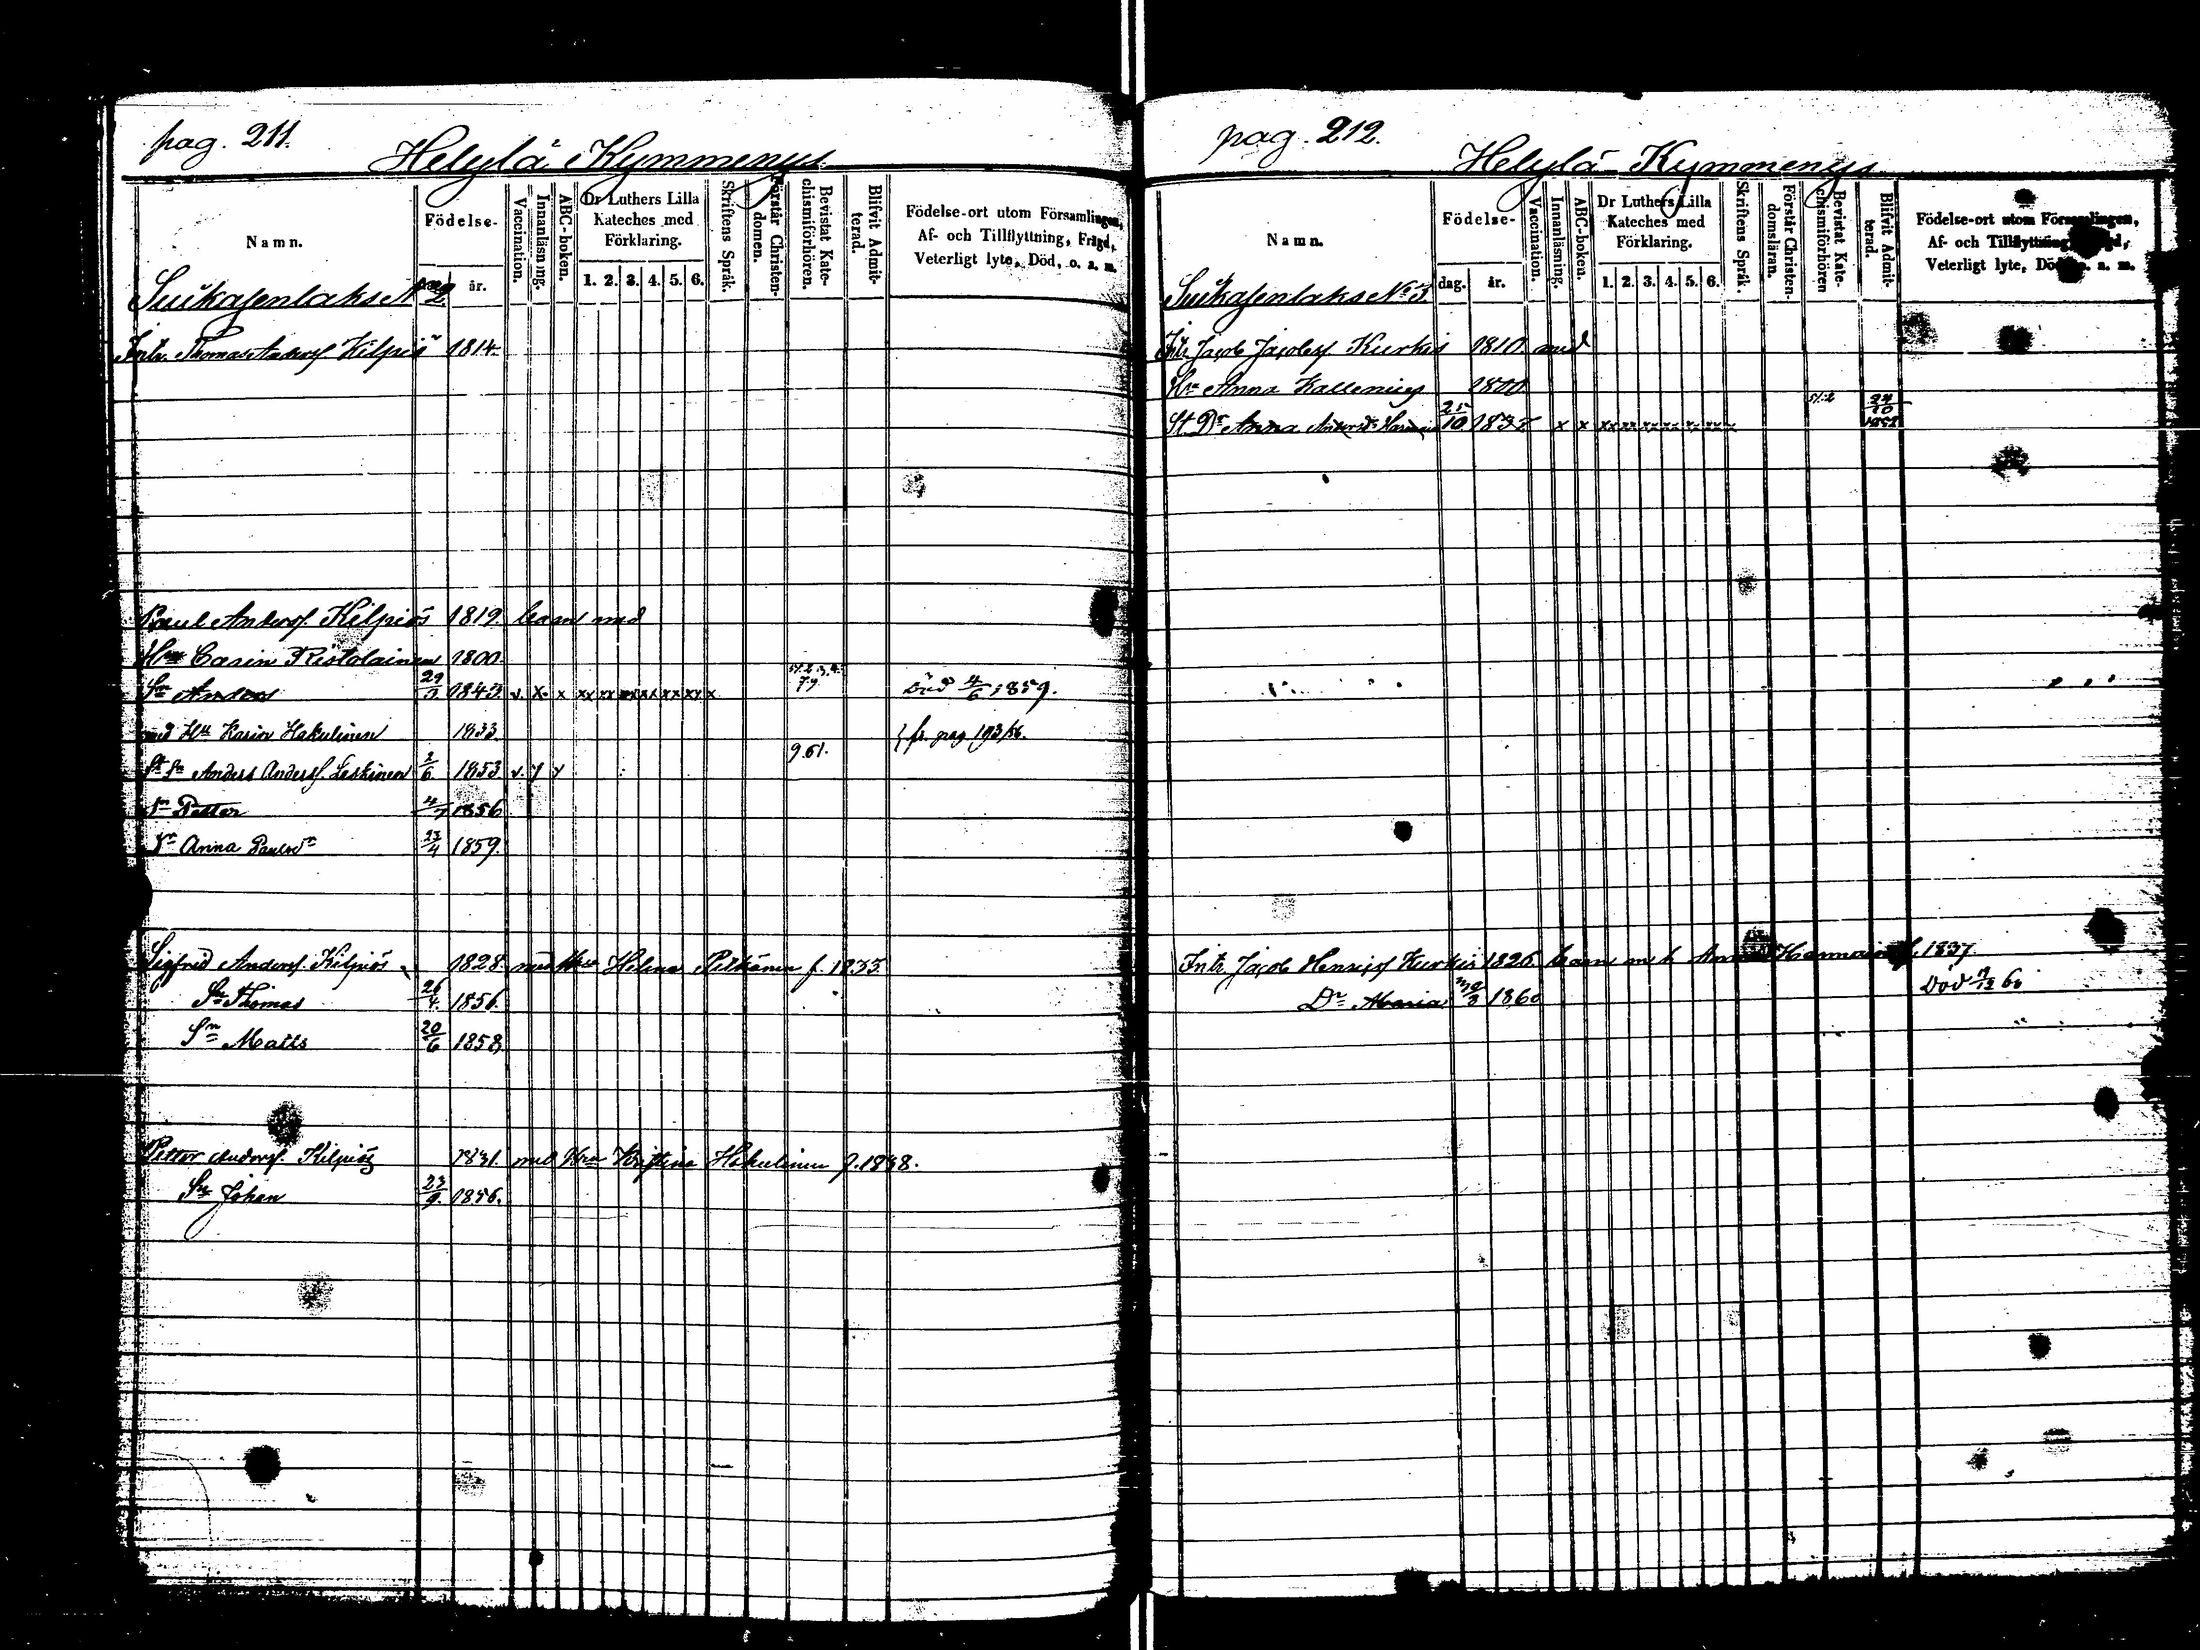 pag. 211.
Helylä Kymmenys
Namn.
Födelse-
dag
år.
Vaccination.
Innanläsning.
ABC-boken.
Dr Luthers Lilla
Kateches med
Förklaring.
1. 2. 3. 4. 5. 6.
Skriftens Språk.
Förstår Christen-
domen.
Bevistat Kate-
chismiförhören.
Blifvit Admit-
terad.
Födelse-ort utom Församlingen,
Af- och Tillflyttning, Frägd,
Veterligt lyte, Död, o. a. m.
Suikasenlaks N 2
Thomas Andersf Kilpiö 1814.
Paul Andersf Kilpiös 1819. med
Casin Ristolainen 1800.
Sn Anders 29 1843 v. x x xx xx xx xx xx xx x 7.9 Död 4/6 1859.
med Hu Karin Hakulinen 1833 fr. pag 193
9 61.
St Sn Anders Andersf. Leskinen 2/6 1853 v. y y
Sn Petter 4/7 1856
Dr Anna Paulsdr 23/4 1859.
Sigfred Andersf. Kilpiös 1828. med Helena Pitkänen f. 1833.
Sn Thomas 26/4. 1856.
Sn Matts 20/6 1858
Petter Andersf. Kilpiös 1831. med Kristina Hakulinen f. 1838.
Sn Johan 23/9. 1856.
pag. 212.
Helylä Kymmenys
Namn.
Födelse-
dag.
år.
Vaccination.
Innanläsning.
ABC-boken.
Dr Luthers Lilla
Kateches med
Förklaring.
1. 2. 3. 4. 5. 6.
Skriftens Språk.
Förstår Christen-
domsläran.
Bevistat Kate-
chismiförhören
Blifvit Admit-
terad.
Födelse-ort utom Församlingen,
Af- och Tillflyttning,
Veterligt lyte, Död, o. a. m.
Suikasenlaks No 3
Jacob Jacobsf. Kurkis 1810. med
Anna 1800
St Dr Anna Andersdr 25/10 183 x x xx xx xx xx xx xx 24/10
Jacob Henrisf Kurkis 1826. 1837
Dr Maria 1860 Död